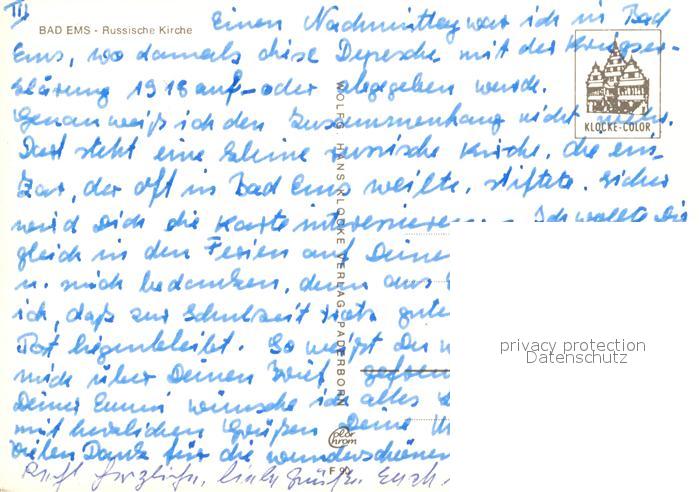 III
BAD EMS - Russische Kirche
Einen Nachmittag war ich in Bad
Ems, wo damals diese Depesche mit der Kriegser-
klärung 1918 auf- oder abgegeben wurde.
Genau weiß ich den Zusammenhang nicht mehr.
Dort steht eine kleine russische Kirche, die ein
Zar, der oft in Bad Ems weilte, stiftete. Sicher
wird Dich die Karte interessieren. - Ich wollte Dir
gleich in den Ferien auf Deinen
u. mich bedanken, denn aus
ich, daß zur Schulzeit trotz guter
Post liegenbleibt. So weißt Du
mich über Deinen Brief
Deiner wünsche ich alles
mit herzlichen Grüßen Deine
Vielen Dank für die wunderschönen
Recht herzliche, liebe Grüße Euch
KLOCKE-COLOR
WOLFG. HANS KLOCKE VERLAG PADERBORN
Color
chrom
F 90
privacy protection
Datenschutz